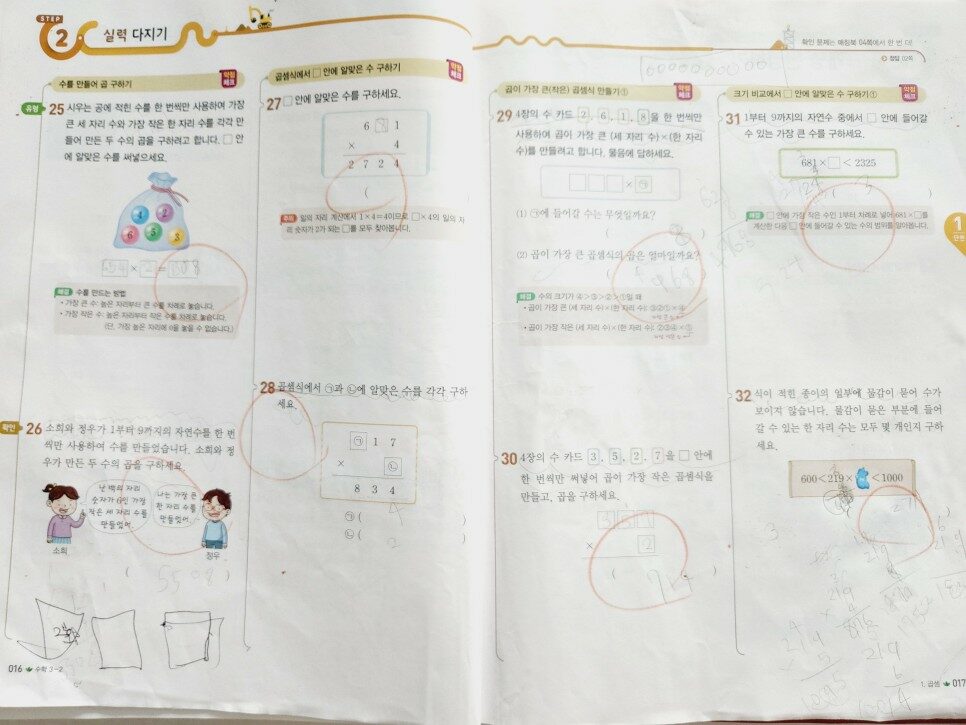 STEP 2 실력 다지기
수를 만들어 곱 구하기
약점 체크
유형 25 시우는 공에 적힌 수를 한 번씩만 사용하여 가장
큰 세 자리 수와 가장 작은 한 자리 수를 각각 만
들어 만든 두 수의 곱을 구하려고 합니다. □ 안
에 알맞은 수를 써넣으세요.
4 2
6 5 8
해결 수를 만드는 방법
• 가장 큰 수: 높은 자리부터 큰 수를 차례로 놓습니다.
• 가장 작은 수: 높은 자리부터 작은 수를 차례로 놓습니다.
(단, 가장 높은 자리에 0을 놓을 수 없습니다.)
확인 26 소희와 정우가 1부터 9까지의 자연수를 한 번
씩만 사용하여 수를 만들었습니다. 소희와 정
우가 만든 두 수의 곱을 구하세요.
난 백의 자리
숫자가 6인 가장
작은 세 자리 수를
만들었어.
나는 가장 큰
한 자리 수를
만들었어.
소희
정우
( 5508 )
016 수학 3-2
곱셈식에서 □ 안에 알맞은 수 구하기
약점 체크
27 □ 안에 알맞은 수를 구하세요.
6 □ 1
× 4
2 7 2 4
(
주의 일의 자리 계산에서 1×4=4이므로 □×4의 일의 자
리 숫자가 2가 되는 □를 모두 찾아봅니다.
28 곱셈식에서 ㉠과 ㉡에 알맞은 수를 각각 구하
세요.
㉠ 1 7
× ㉡
8 3 4
㉠ ( 4
㉡ ( 2
확인 문제는 매칭북 04쪽에서 한 번 더!
정답 02쪽
곱이 가장 큰(작은) 곱셈식 만들기①
약점 체크
29 4장의 수 카드 2, 6, 1, 8을 한 번씩만
사용하여 곱이 가장 큰 (세 자리 수)×(한 자리
수)를 만들려고 합니다. 물음에 답하세요.
□□□×㉠
(1) ㉠에 들어갈 수는 무엇일까요?
( 8
(2) 곱이 가장 큰 곱셈식의 곱은 얼마일까요?
( 4968
해결 수의 크기가 ④>③>②>①일 때
• 곱이 가장 큰 (세 자리 수)×(한 자리 수): ③②①×④
가장 큰 수
• 곱이 가장 작은 (세 자리 수)×(한 자리 수): ②③④×①
가장 작은 수
30 4장의 수 카드 3, 5, 2, 7을 □ 안에
한 번씩만 써넣어 곱이 가장 작은 곱셈식을
만들고, 곱을 구하세요.
× 2
(
크기 비교에서 □ 안에 알맞은 수 구하기①
약점 체크
31 1부터 9까지의 자연수 중에서 □ 안에 들어갈
수 있는 가장 큰 수를 구하세요.
681×□<2325
( 3 )
해결 □ 안에 가장 작은 수인 1부터 차례로 넣어 681×□를
계산한 다음 □ 안에 들어갈 수 있는 수의 범위를 알아봅니다.
1
단원
32 식이 적힌 종이의 일부에 물감이 묻어 수가
보이지 않습니다. 물감이 묻은 부분에 들어
갈 수 있는 한 자리 수는 모두 몇 개인지 구하
세요.
600<219× <1000
1. 곱셈 017